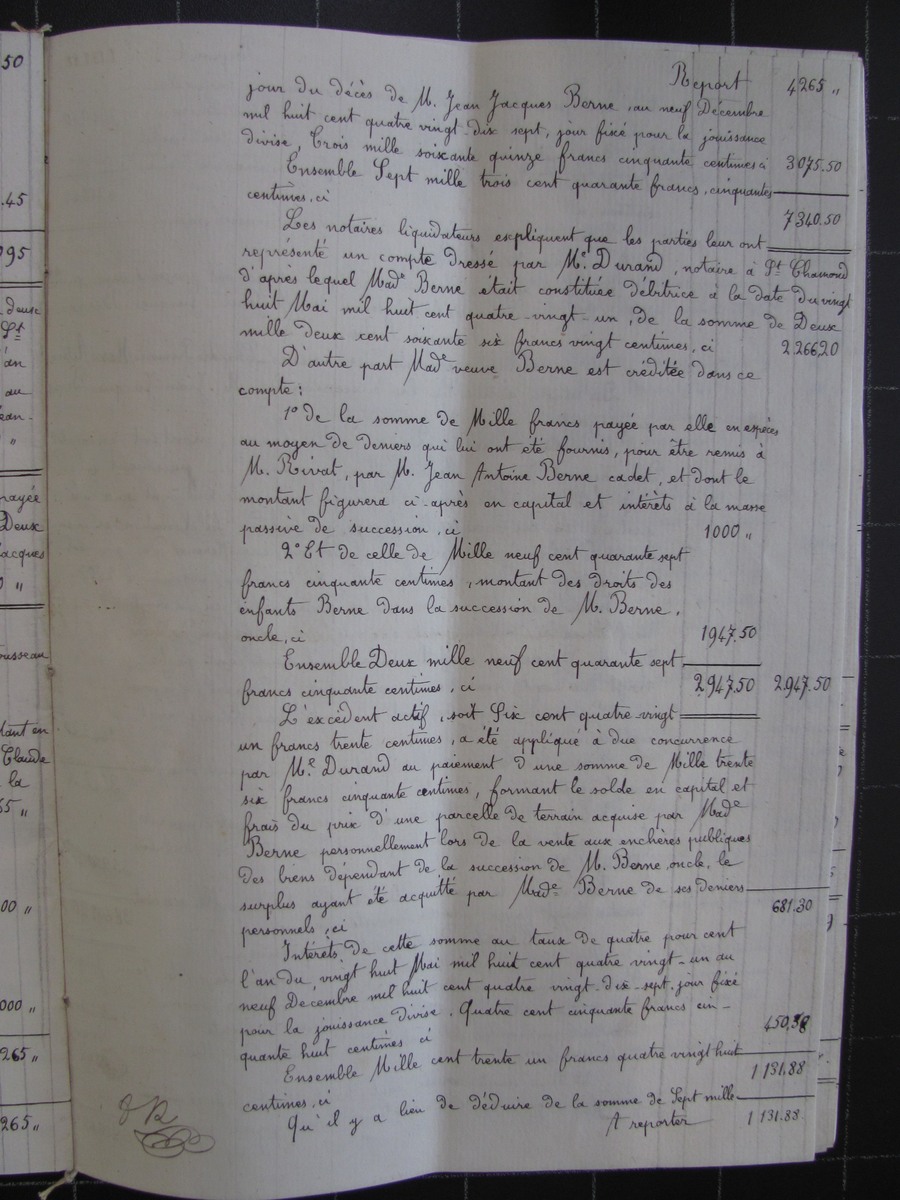 Report 4265 "
jour du décès de M. Jean Jacques Berne au neuf Décembre
mil huit cent quatre vingt-dix sept, jour fixé pour la jouissance
divise, Trois mille soixante quinze francs cinquante centimes ci 3075.50
Ensemble Sept mille trois cent quarante francs, cinquantes
centimes, ci 7340.50
Les notaires liquidateurs expliquent que les parties leur ont
représenté un compte dressé par Me. Durand, notaire à St. Chamond
d'après lequel Made Berne était constituée débitrice à la date du vingt
huit Mai mil huit cent quatre-vingt-un, de la somme de Deux
mille deux cent soixante six francs vingt centimes, ci 2.266.20
D'autre part Made veuve Berne est créditée dans ce
compte:
1° de la somme de Mille francs payée par elle en espèces
au moyen de deniers qui lui ont été fournis, pour être remis à
M. Rivat, par M. Jean Antoine Berne cadet, et dont le
montant figurera ci-après en capital et intérêts à la masse
passive de succession, ci 1000 "
2° Et de celle de Mille neuf cent quarante sept
francs cinquante centimes, montant des droits des
enfants Berne dans la succession de M. Berne,
oncle, ci 1947.50
Ensemble Deux mille neuf cent quarante sept
francs cinquante centimes, ci 2.947.50 2.947.50
L'excédent actif, soit Six cent quatre-vingt
un francs trente centimes, a été appliqué à due concurrence
par Me. Durand au paiement d'une somme de Mille trente
six francs cinquante centimes, formant le solde en capital et
frais du prix d'une parcelle de terrain acquise par Made
Berne personnellement lors de la vente aux enchères publiques
des biens dépendant de la succession de M. Berne oncle, le
surplus ayant été acquitté par Made Berne de ses deniers
personnels, ci 681.30
Intérêts de cette somme au taux de quatre pour cent
l'an du vingt huit Mai mil huit cent quatre vingt-un au
neuf Décembre mil huit cent quatre vingt-dix-sept, jour fixé
pour la jouissance divise, Quatre cent cinquante francs cin-
quante huit centimes ci 450,58
Ensemble Mille cent trente un francs quatre vingt huit
centimes, ci 1131.88
Qu'il y a lieu de déduire de la somme de Sept mille
A reporter 1131.88